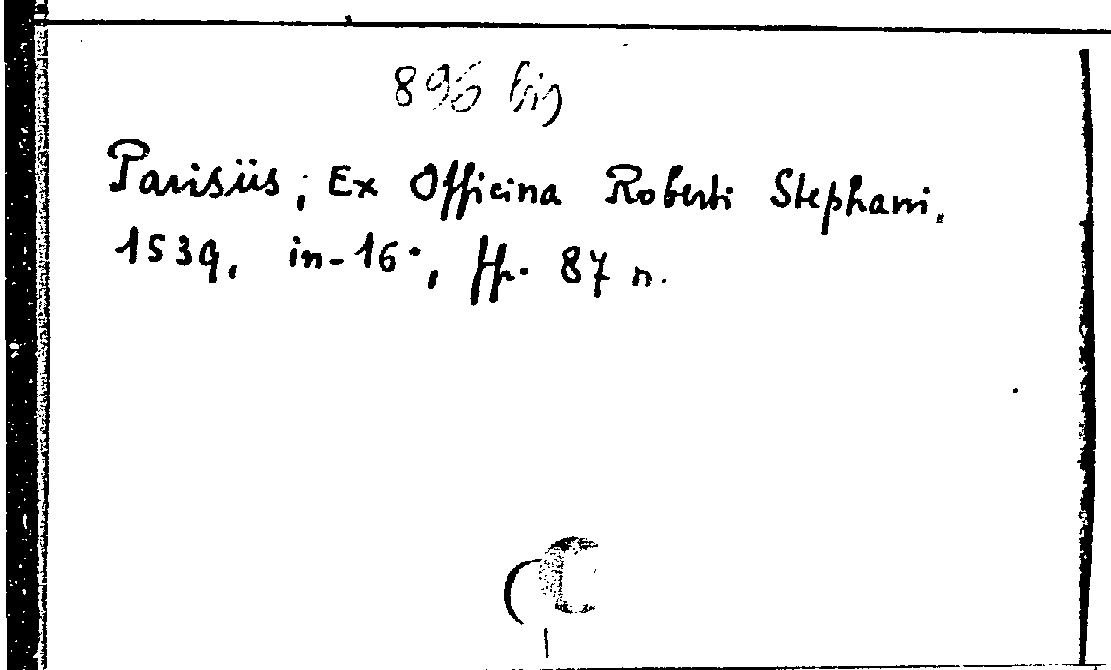 896 bis
Parisiis, Ex Officina Roberti Stephani.
1539, in-16°, ff. 87 n.